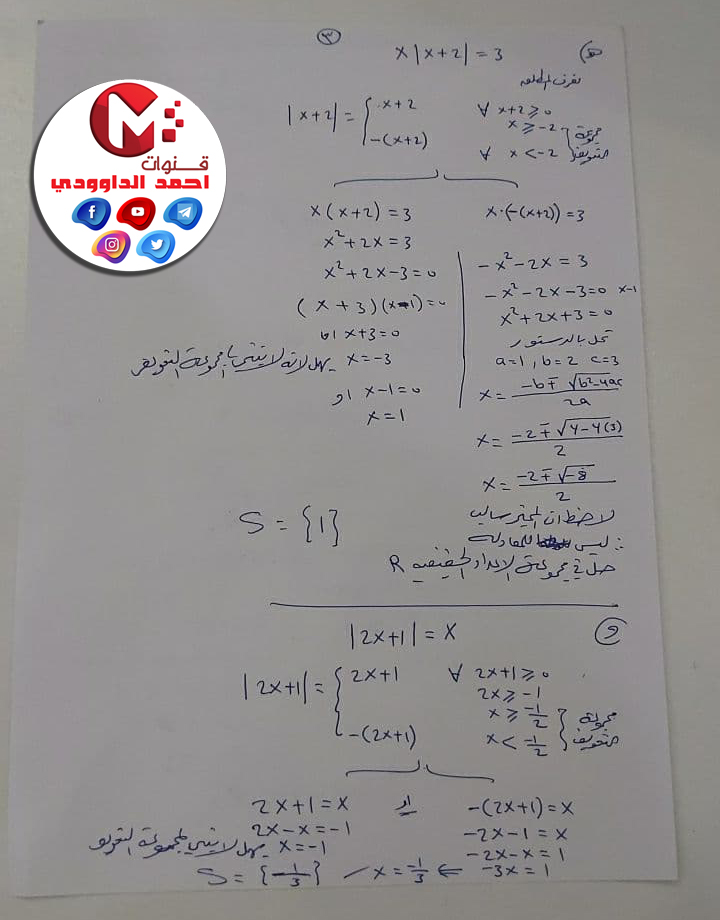 ٣
هـ) x|x+2| = 3
نعرف المطلقه
|x+2| = { x+2 ∀ x+2 ≥ 0
x ≥ -2
-(x+2) ∀ x < -2
مجموعة التعويض
x(x+2) = 3
x² + 2x = 3
x² + 2x - 3 = 0
(x+3)(x-1) = 0
اما x+3 = 0
x = -3 يهمل لانه لا ينتمي لمجموعة التعويض
او x-1 = 0
x = 1
x·(-(x+2)) = 3
-x² - 2x = 3
-x² - 2x - 3 = 0 ×-1
x² + 2x + 3 = 0
تحل بالدستور
a=1, b=2 c=3
x = (-b ∓ √(b²-4ac))/2a
x = (-2 ∓ √(4-4(3)))/2
x = (-2 ∓ √-8)/2
لاحظ ان المميز سالب
∴ ليس للمعادلة
حل في مجموعة الاعداد الحقيقيه R
S = {1}
و) |2x+1| = x
|2x+1| = { 2x+1 ∀ 2x+1 ≥ 0
2x ≥ -1
x ≥ -1/2
-(2x+1) x < -1/2
مجموعة التعويض
2x+1 = x او -(2x+1) = x
2x-x = -1
x = -1 يهمل لا ينتمي لمجموعة التعويض
-2x-1 = x
-2x-x = 1
-3x = 1
x = -1/3 ⇐
S = {-1/3}
قنوات
احمد الداوودي